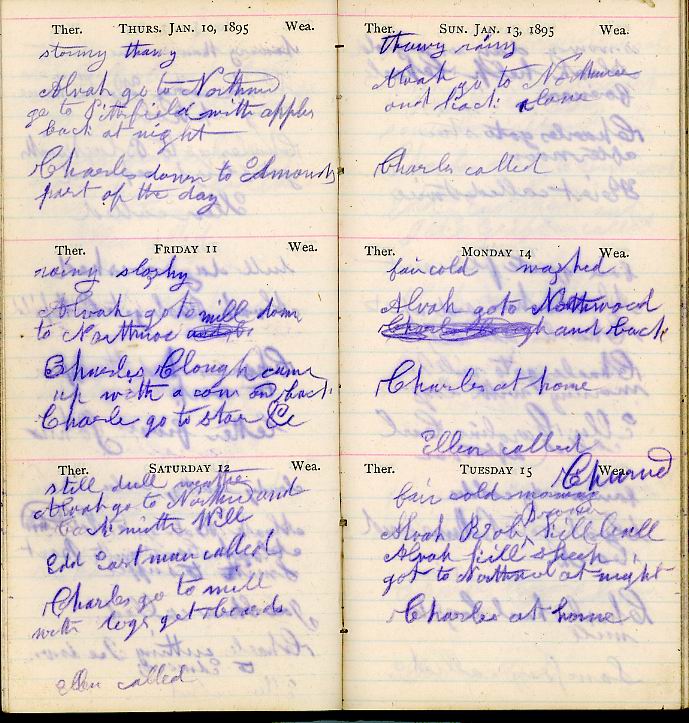 Ther. THURS. JAN. 10, 1895 Wea.
stormy thawy
Alvah go to Northwd
go to Pittsfield with apples
back at night
Charles down to Edmonds
part of the day
Ther. FRIDAY 11 Wea.
rainy sloshy
Alvah go to mill down
to Northwoe
Charles Clough came
up with a cow on back
Charle go to stoar
Ther. SATURDAY 12 Wea.
still dull weathe
Alvah go to and
back with Will
Edd Eastman called
Charles go to mill
with logs get boards
Ellen called
Ther. SUN. JAN. 13, 1895 Wea.
thawy rainy
Alvah go to
and back alone
Charles called
Ther. MONDAY 14 Wea.
fair cold washed
Alvah go to Northwood
and back
Charles at home
Ellen called
Ther. TUESDAY 15 Wea.
Churned
fair cold
Alvah Rob kill
Alvah kill sheep
got to at night
Charles at home